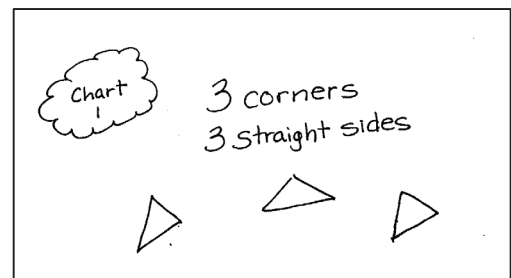 Chart
1
3 corners
3 straight sides